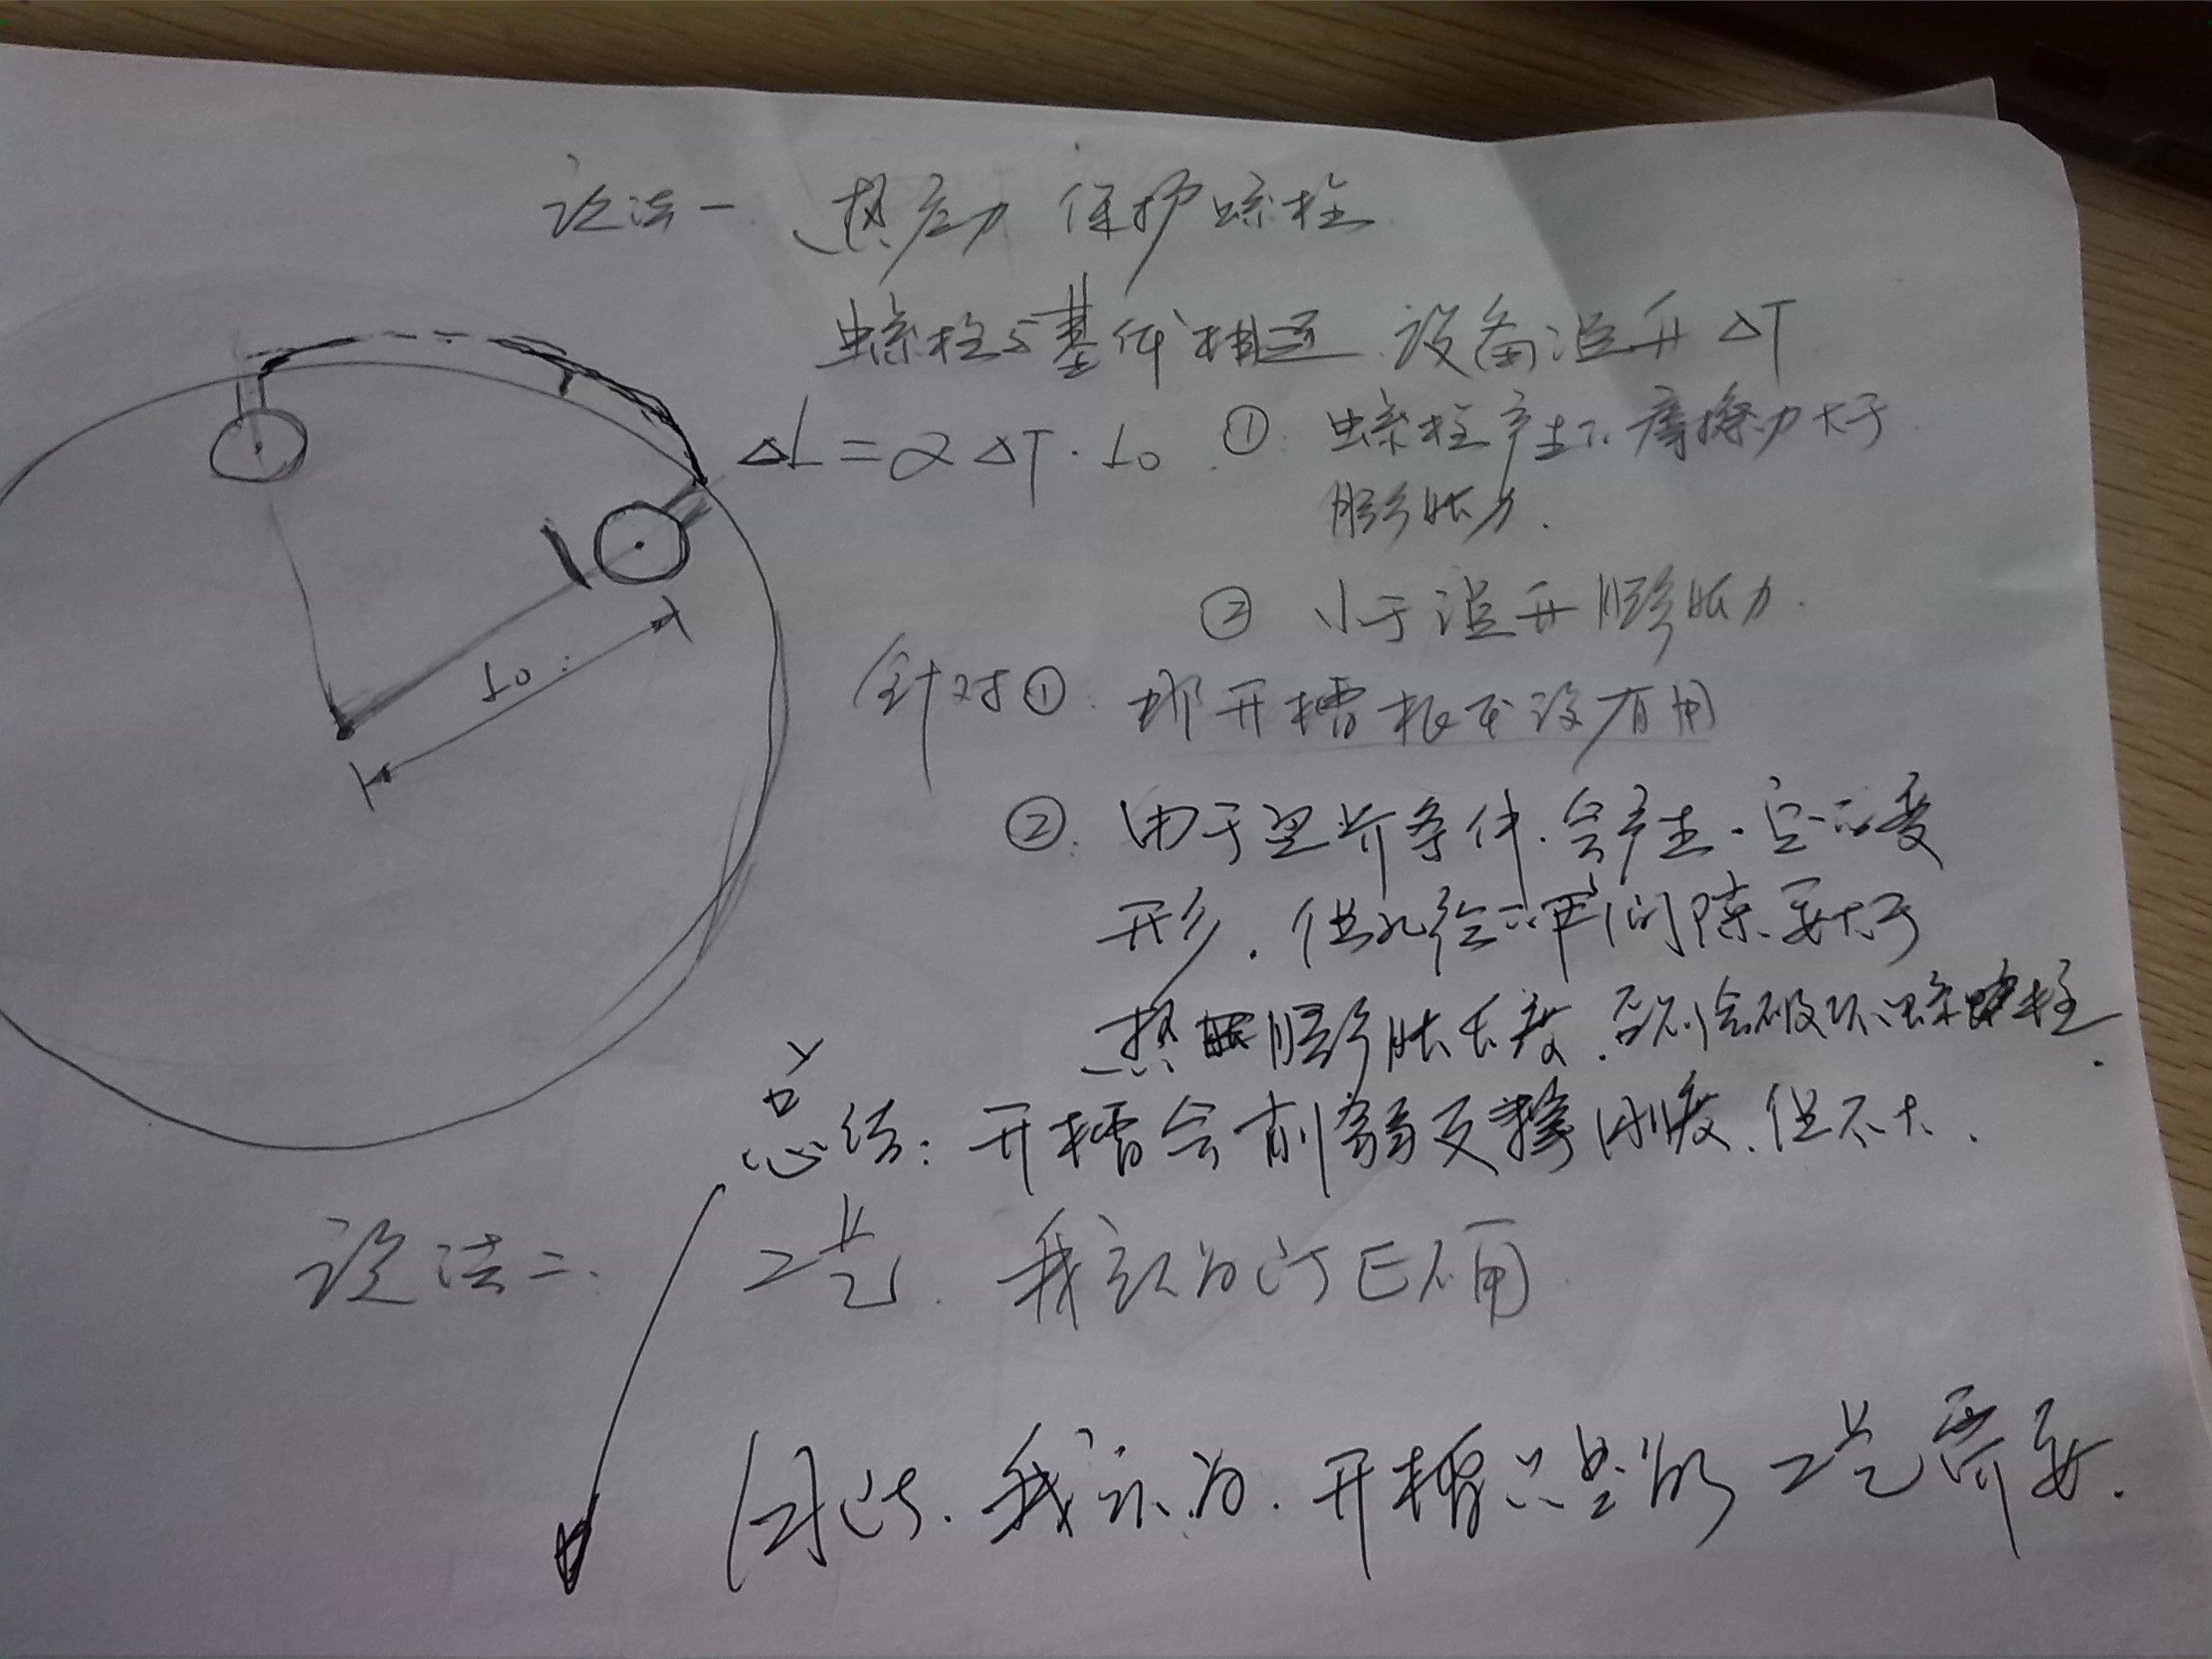 说法一 热应力 保护螺栓
螺栓与基体相连 设备温升 ΔT
ΔL=αΔT·L0 ① 螺栓产生的摩擦力大于
膨胀力.
② 小于温升膨胀力.
L0
针对① 那开槽根本没有用
② 由于边界条件.会产生一定的变
形.但孔径的间隙要大于
热膨胀长度.否则会破坏螺栓.
总结:开槽会削弱支撑刚度.但不大.
说法二. 工艺. 我认为
因此.我认为.开槽只是的工艺需要.